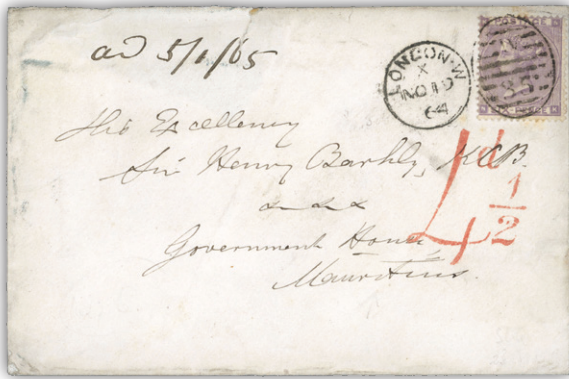 ad 5/1/65
LONDON·W
X
NO 19
64
His Excellency
Sir Henry Barkly, KCB.
Government House
Mauritius.
4d 1/2